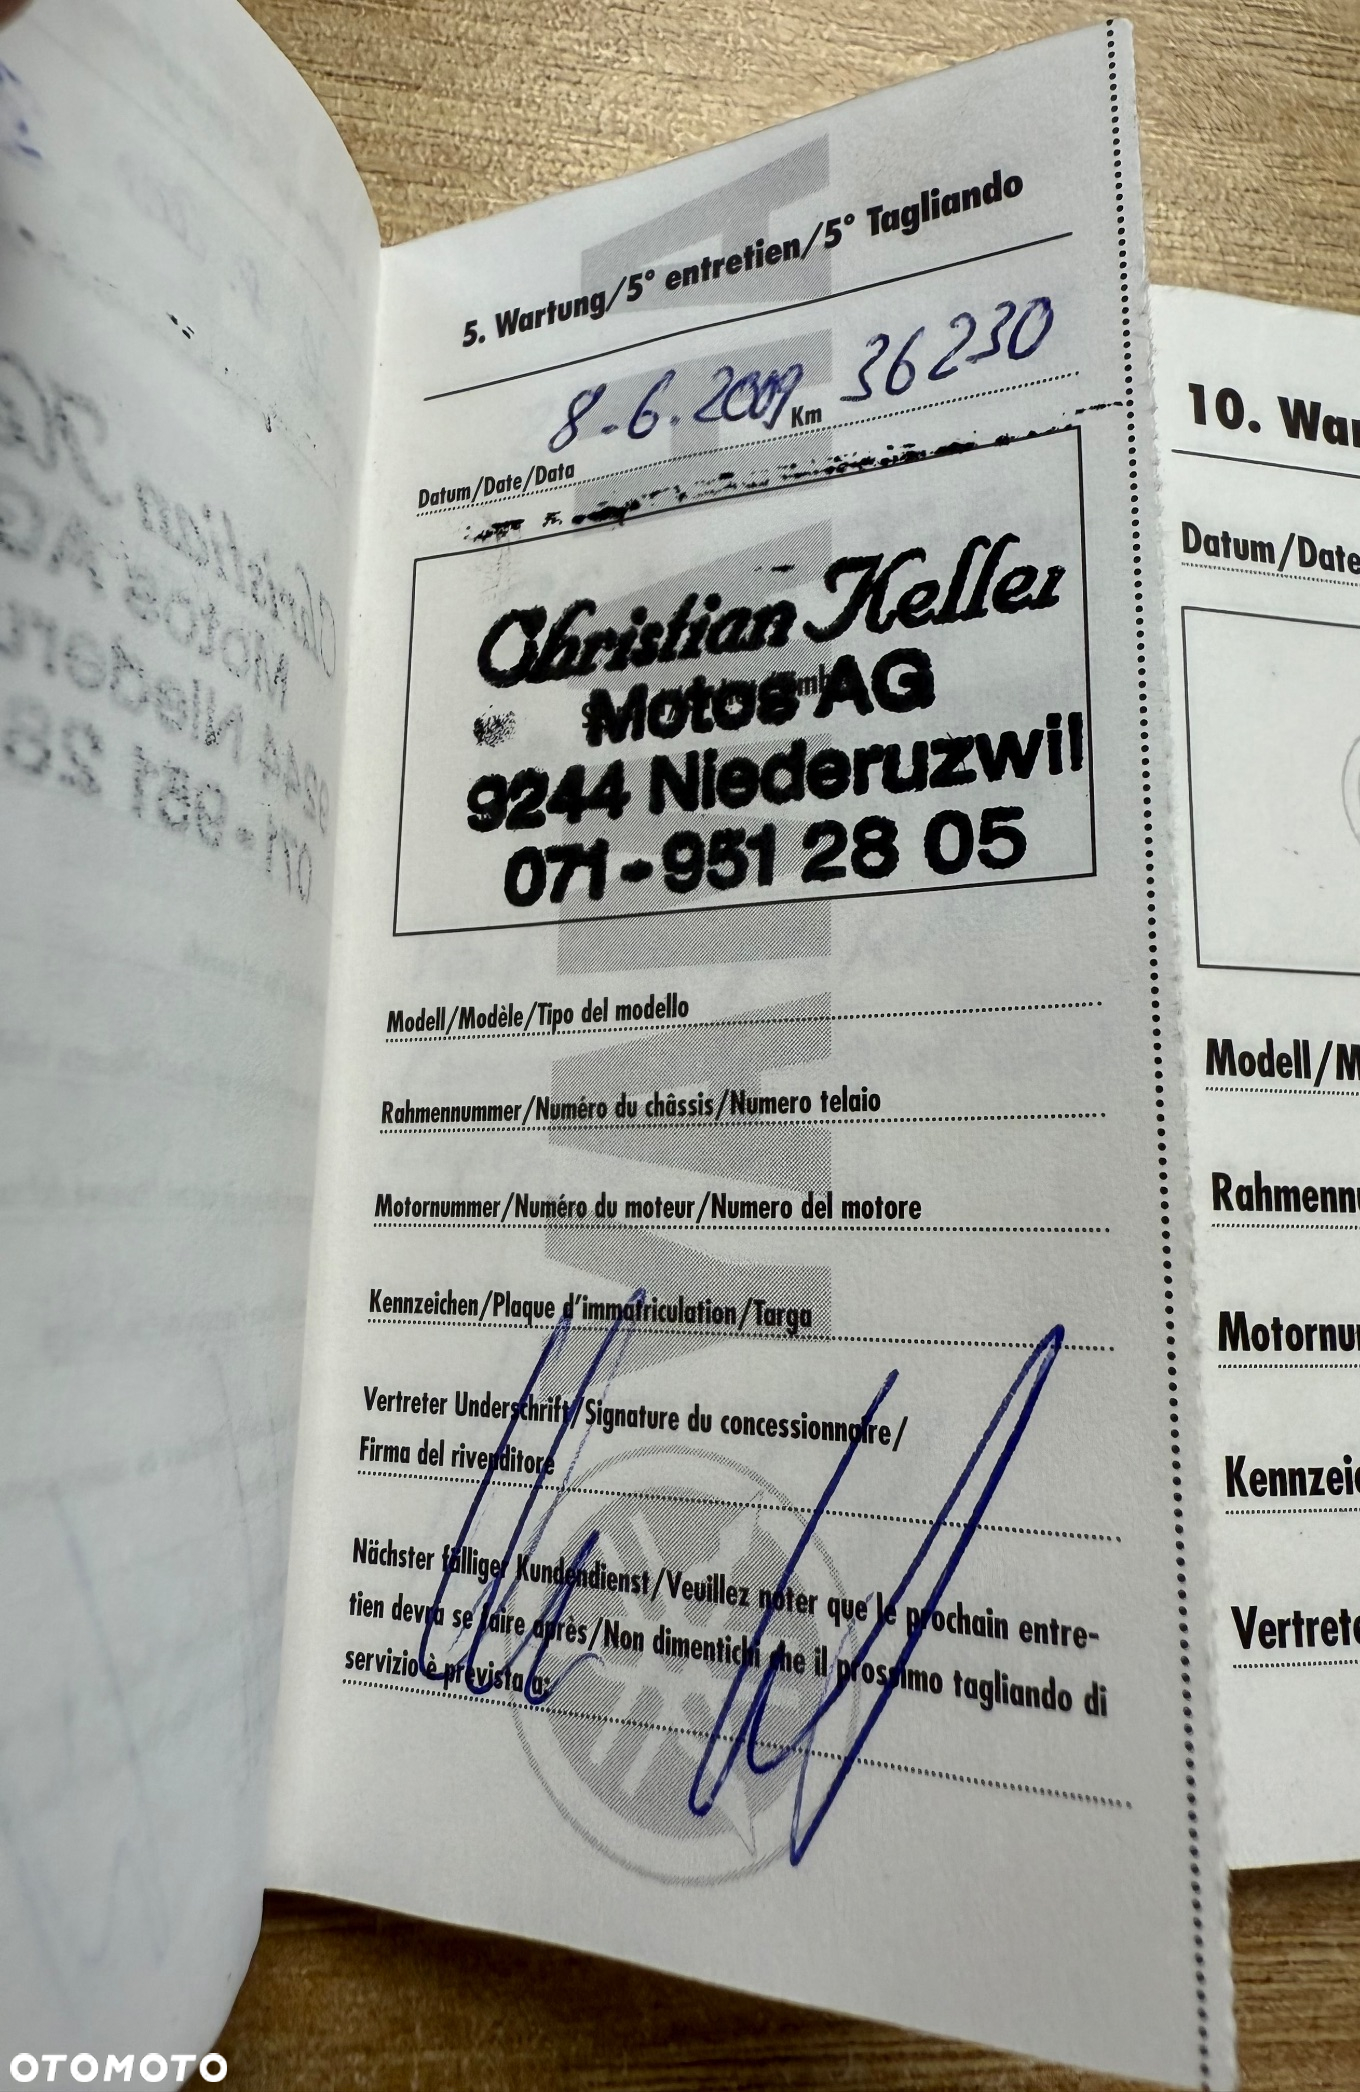 5. Wartung/5° entretien/5° Tagliando
8.6.2009 Km 36230
Datum/Date/Data
Christian Keller
Motos AG
9244 Niederuzwil
071-951 28 05
Modell/Modèle/Tipo del modello
Rahmennummer/Numéro du châssis/Numero telaio
Motornummer/Numéro du moteur/Numero del motore
Kennzeichen/Plaque d'immatriculation/Targa
Vertreter Underschrift/Signature du concessionnaire/
Firma del rivenditore
Nächster fälliger Kundendienst/Veuillez noter que le prochain entre-
tien devra se faire après/Non dimentichi che il prossimo tagliando di
servizio è prevista a:
YAMAHA
10. War
Datum/Date
Modell/M
Rahmennu
Motornu
Kennzeic
Vertrete
OTOMOTO